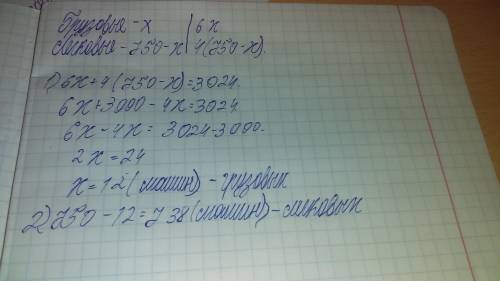 Грузовые - х | 6х
Легковые - 750-х | 4(750-х)
1) 6х+4(750-х)=3024.
6х+3000-4х=3024.
6х-4х= 3024-3000.
2х=24
х=12(машин)-грузовых
2) 750-12=738(машин)-легковых